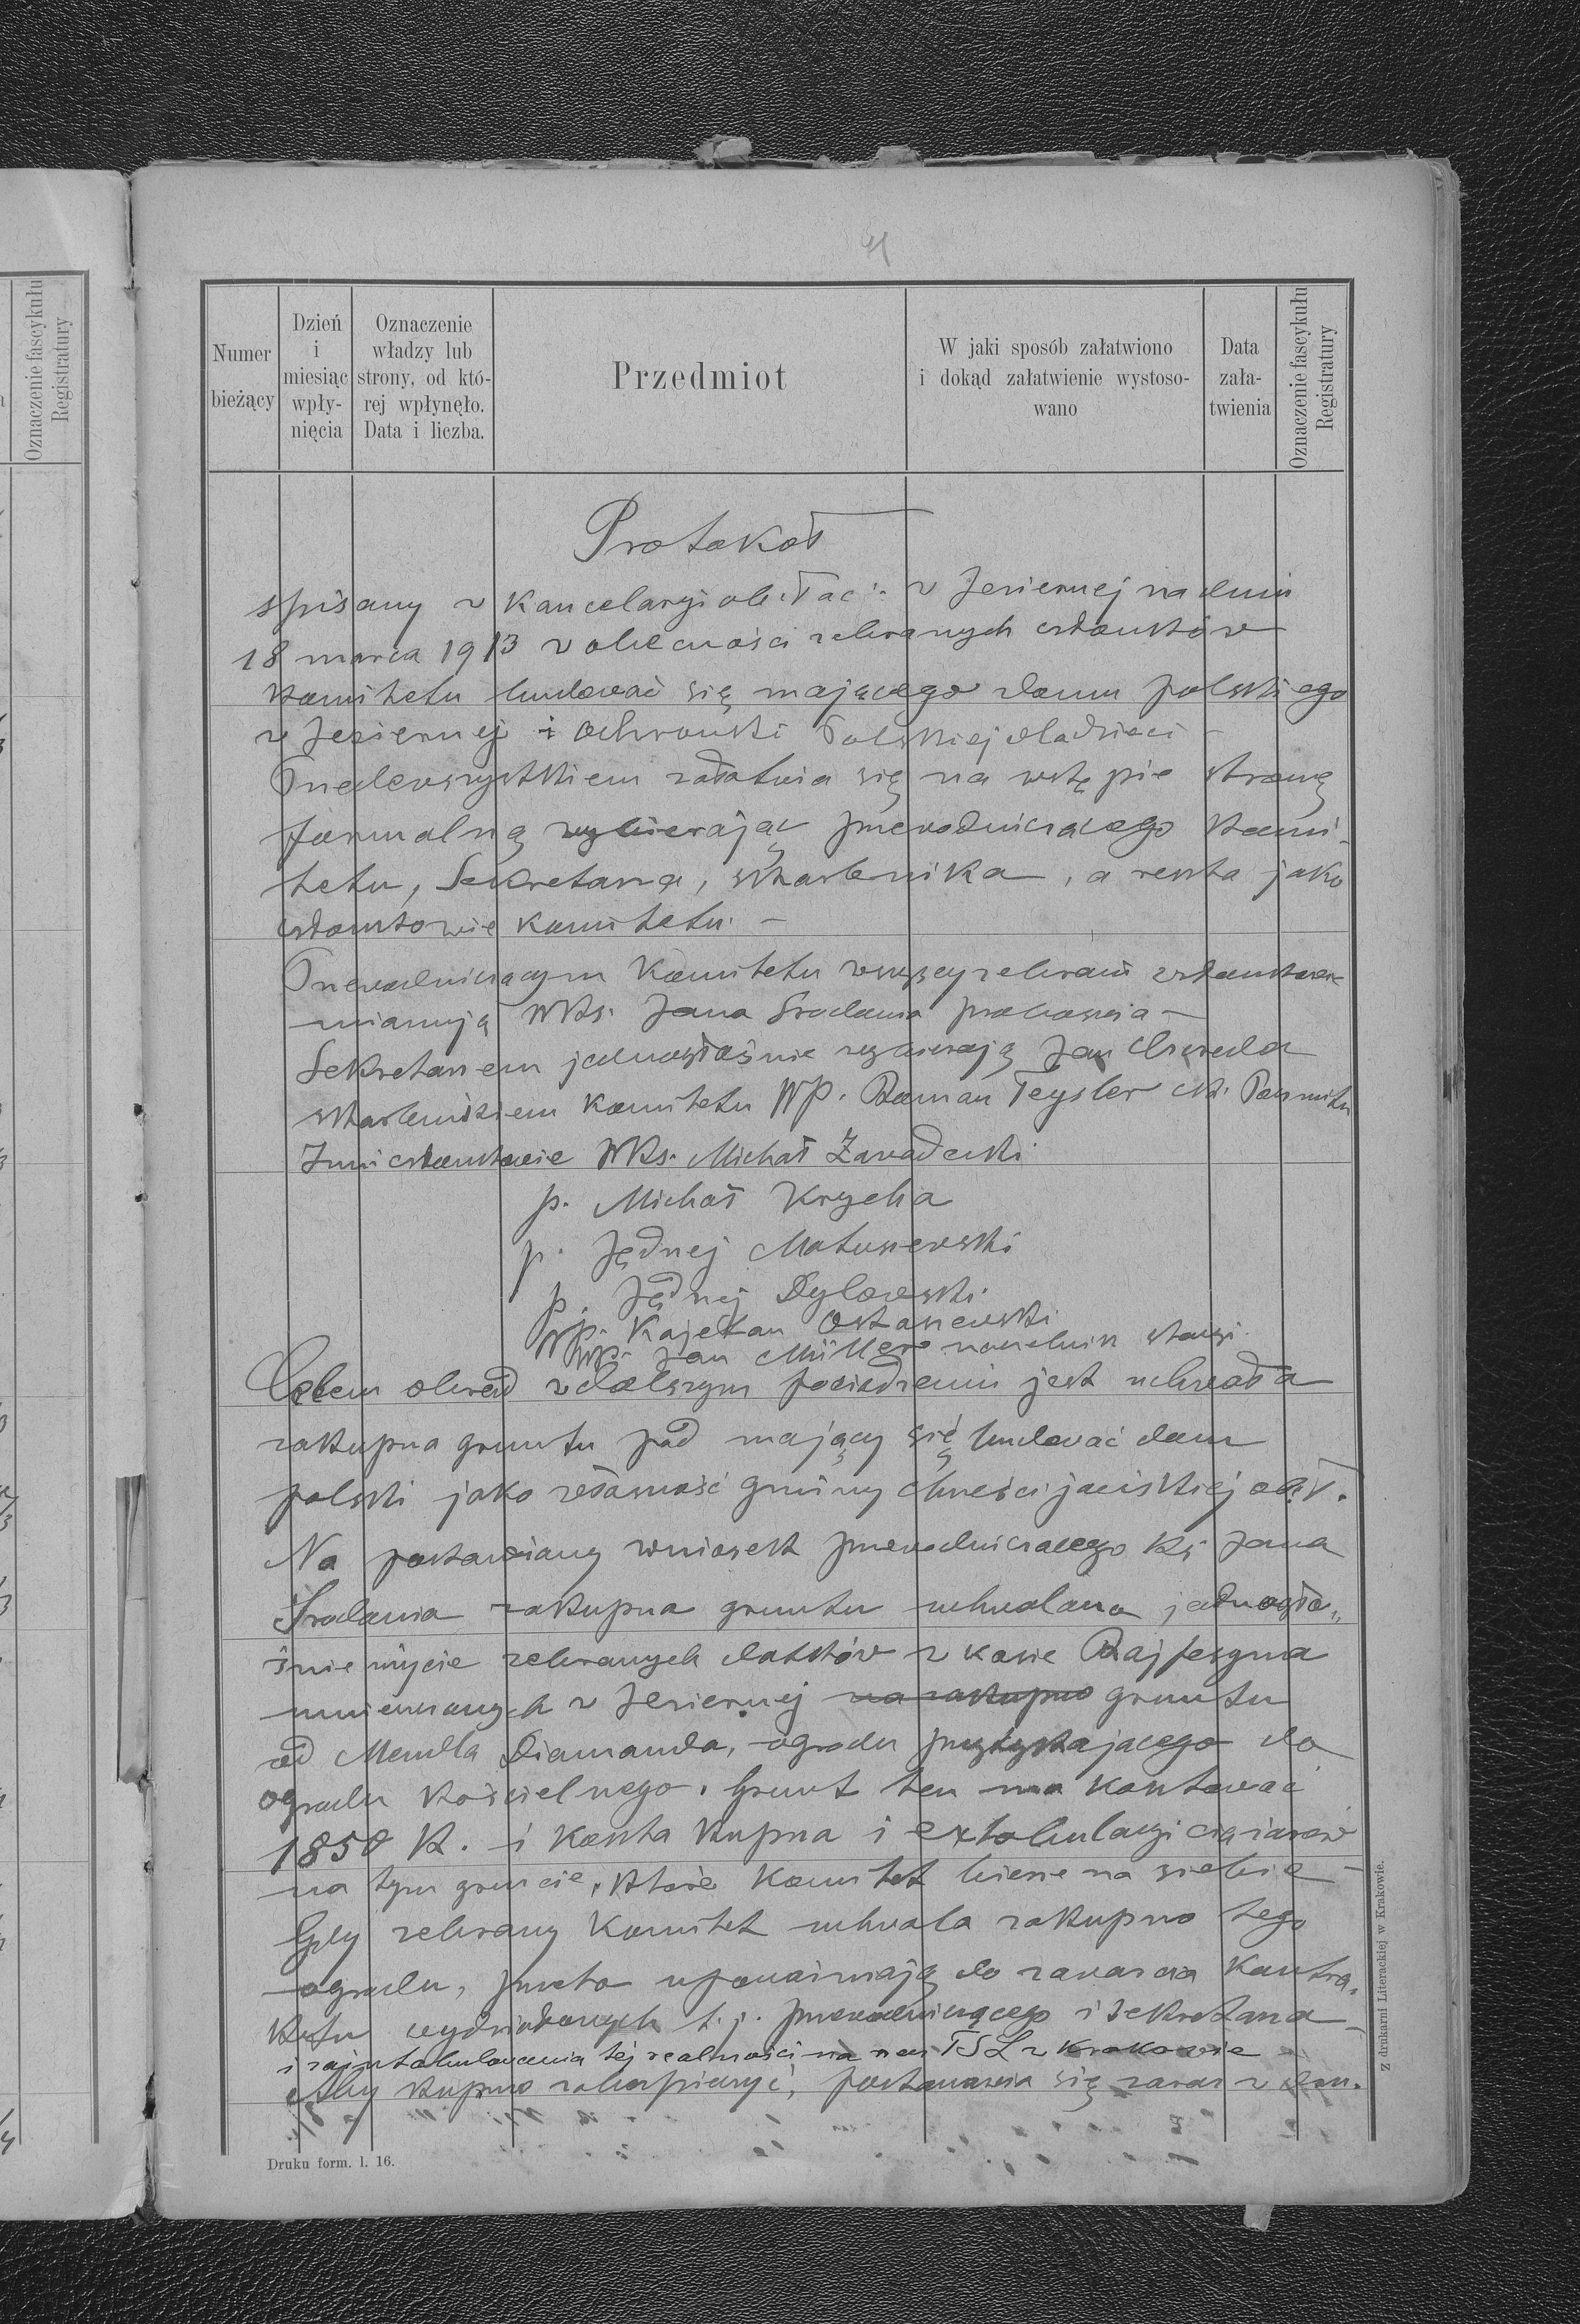 Oznaczenie fascykułu
Registratury
Numer
bieżący
Dzień
i
miesiąc
wpły-
nięcia
Oznaczenie
władzy lub
strony, od któ-
rej wpłynęło.
Data i liczba.
Przedmiot
W jaki sposób załatwiono
i dokąd załatwienie wystoso-
wano
Data
zała-
twienia
Oznaczenie fascykułu
Registratury
Protokoł
spisany w Kancelaryi ob. łac. w Jeziernej na dniu
18 marca 1913 w obecności zebranych członków
komitetu budować się mającego domu polskiego
w Jeziernej i ochronki Polskiej dla dzieci –
Przedewszystkiem załatwia się na wstępie stronę
formalną wybierając przewodniczącego komi-
tetu, Sekretarza, skarbnika, a reszta jako
członkowie komitetu. –
Przewodniczącym Komitetu wszyscy zebrani członkowie
mianują WKs. Jana Sradama proboszcza –
Sekretarzem jednogłośnie wybierają Jan Chrzeda
skarbnikiem komitetu WP. Roman Teysler
Inni członkowie WKs. Michał Zawadecki
p. Michał Krycha
p. Jędrzej Matuszewski
p. Jędrzej Dylowski.
Wp. Kajetan Ostaszewski
Wp. Jan Müller naczelnik stacyi.
Celem obrad w dalszym posiedzeniu jest uchwała
zakupna gruntu pod mający się budować dom
polski jako własność gminy chrześcijańskiej ob. ł.
Na postawiony wniosek przewodniczącego Ks Jana
Sradama zakupna gruntu uchwalono jednogło„
śnie użycie zebranych datków w kasie Rajfesyna
umieszczonych w Jeziernej na zakupno gruntu
od Mendla Diamanda, ogrodu przytykającego do
ogrodu Kościelnego. Grunt ten ma kosztować
1850 K. i koszta kupna i extabulacyi ciężarów
na tym gruncie, które Komitet bierze na siebie –
Gdy zebrany Komitet uchwala zakupno tego
ogrodu, przeto upoważniają do zawarcia Kontra-
ktu wydziałowych t. j. przewodniczącego i sekretarza –
i zaintabulowania tej realności na rzecz TSL w Krakowie
Aby kupno zabezpieczyć, postanawia się zaraz w
Druku form. l. 16.
Z drukarni Literackiej w Krakowie.